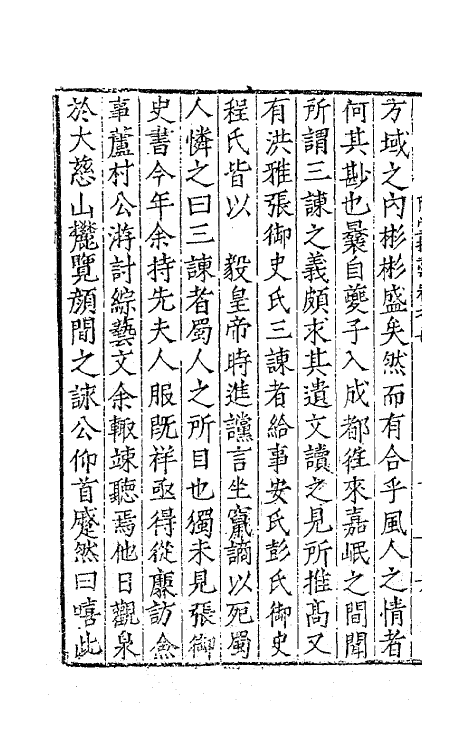 方域之內彬彬盛矣然而有合乎風人之情者
何其尠也曩自夔子入成都徃來嘉岷之間聞
所謂三諫之義頗求其遺文讀之見所推高又
有洪雅張御史氏三諫者給事安氏彭氏御史
程氏皆以　毅皇帝時進讜言坐竄謫以死蜀
人憐之曰三諫者蜀人之所目也獨未見張御
史書今年余持先夫人服既祥亟得從廉訪僉
事蘆村公游討綜藝文余輙竦聽焉他日觀泉
於大慈山麓覽顏間之詠公仰首蹙然曰嘻此